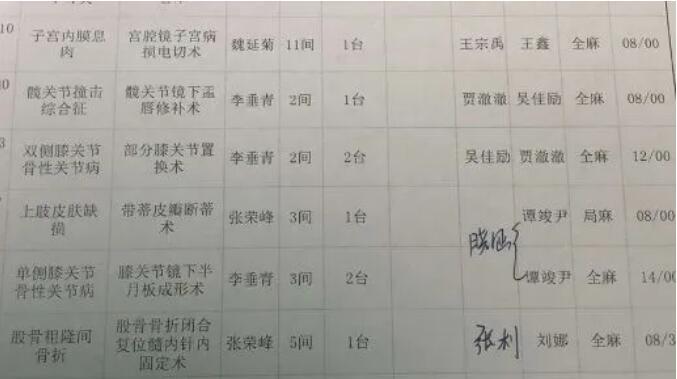 10 子宫内膜息 宫腔镜子宫病 魏延菊 11间 1台 王宗禹 王鑫 全麻 08/00
肉 损电切术
髋关节撞击 髋关节镜下盂 李垂青 2间 1台 贾澈澈 吴佳励 全麻 08/00
综合征 唇修补术
3 双侧膝关节 部分膝关节置 李垂青 2间 2台 吴佳励 贾澈澈 全麻 12/00
骨性关节病 换术
上肢皮肤缺 带蒂皮瓣断蒂 张荣峰 3间 1台 谭竣尹 局麻 08/00
损 术
单侧膝关节 膝关节镜下半 李垂青 3间 2台 谭竣尹 全麻 14/00
骨性关节病 月板成形术
股骨粗隆间 股骨骨折闭合 张荣峰 5间 1台 张利 刘娜 全麻 08/3
骨折 复位髓内针内
固定术